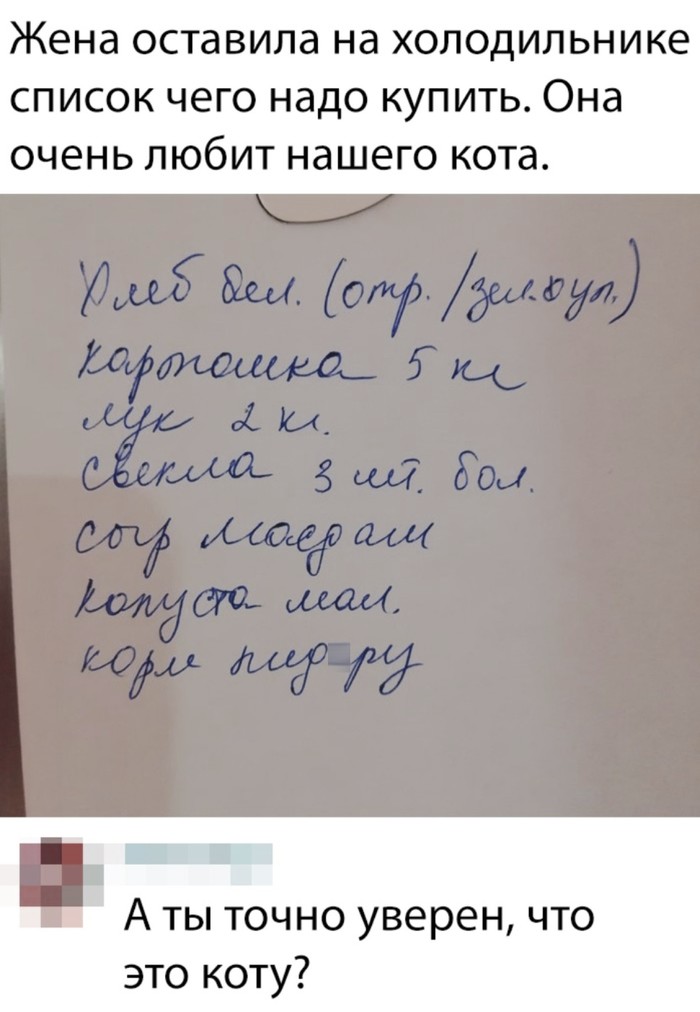 Жена оставила на холодильнике
список чего надо купить. Она
очень любит нашего кота.
Хлеб бел. (отр./зел.уп.)
картошка 5 кг
лук 2 кг.
свекла 3 шт. бол.
сыр Маасдам
капуста мал.
корм
А ты точно уверен, что
это коту?